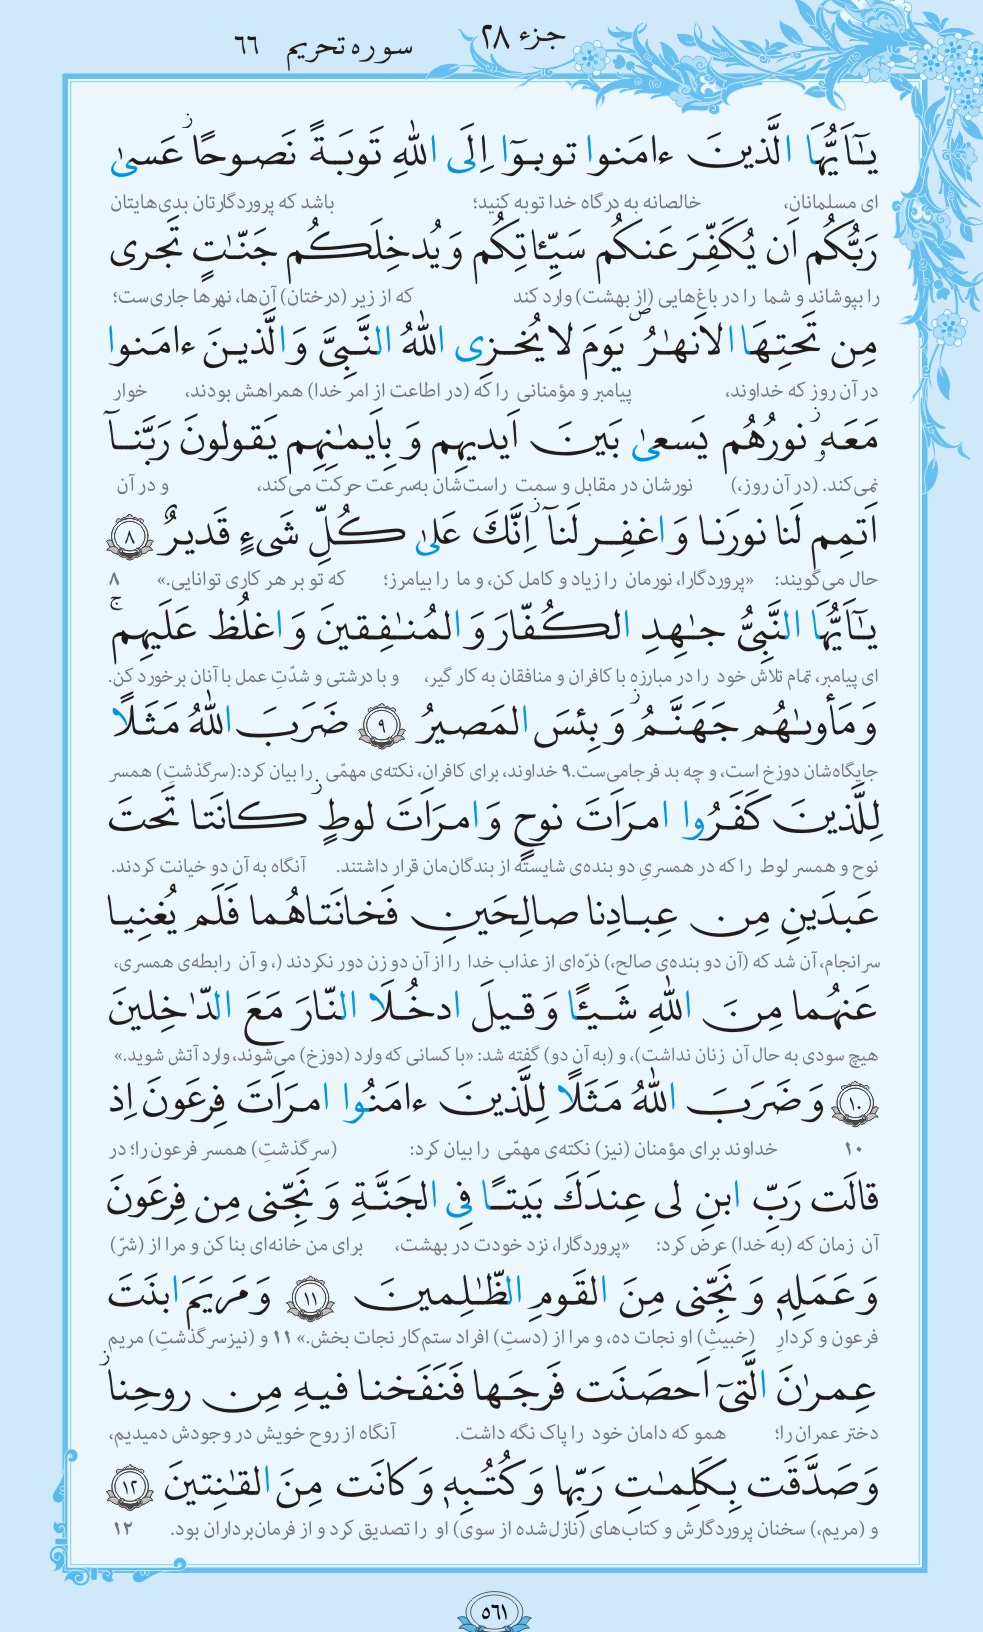 جزء ۲۸
سوره تحریم ۶۶
يٰٓاَيُّهَا الَّذينَ ءامَنوا توبوٓا اِلَى اللّٰهِ تَوبَةً نَصوحًاز عَسىٰ
ای مسلمانان، خالصانه به درگاه خدا توبه کنید؛ باشد که پروردگارتان بدی‌هایتان
رَبُّكُم اَن يُكَفِّرَ عَنكُم سَيِّـٔاتِكُم وَ يُدخِلَكُم جَنّٰتٍ تَجرى
را بپوشاند و شما را در باغ‌هایی (از بهشت) وارد کند که از زیر (درختان) آن‌ها، نهرها جاری‌ست؛
مِن تَحتِهَا الاَنهٰرُص يَومَ لا يُخـزِى اللّٰهُ النَّبِىَّ وَ الَّذينَ ءامَنوا
در آن روز که خداوند، پیامبر و مؤمنانی را که (در اطاعت از امر خدا) همراهش بودند، خوار
مَعَهٗز نورُهُم يَسعىٰ بَينَ اَيديهِم وَ بِاَيمٰنِهِم يَقولونَ رَبَّنآ
نمی‌کند. (در آن روز،) نورشان در مقابل و سمت راست‌شان به‌سرعت حرکت می‌کند، و در آن
اَتمِم لَنا نورَنا وَ اغفِـر لَنآز اِنَّكَ عَلىٰ كُلِّ شَىءٍ قَديرٌ ٨
حال می‌گویند: «پروردگارا، نورمان را زیاد و کامل کن، و ما را بیامرز؛ که تو بر هر کاری توانایی.» ۸
يٰٓاَيُّهَا النَّبِىُّ جـٰهِدِ الكُفّارَ وَ المُنـٰفِقينَ وَ اغلُظ عَلَيهِمج
ای پیامبر، تمام تلاش خود را در مبارزه با کافران و منافقان به کار گیر، و با درشتی و شدّتِ عمل با آنان برخورد کن.
وَ مَأوىٰهُم جَهَنَّمُز وَ بِئسَ المَصيرُ ٩ ضَرَبَ اللّٰهُ مَثَلًا
جایگاه‌شان دوزخ است، و چه بد فرجامی‌ست. ۹ خداوند، برای کافران، نکته‌ی مهمّی را بیان کرد: (سرگذشتِ) همسر
لِلَّذينَ كَفَرُوا امرَاَتَ نوحٍ وَ امرَاَتَ لوطٍز كانَتا تَحتَ
نوح و همسر لوط را که در همسریِ دو بنده‌ی شایسته از بندگان‌مان قرار داشتند. آنگاه به آن دو خیانت کردند.
عَبدَينِ مِن عِبادِنا صالِحَينِ فَخانَتاهُما فَلَم يُغنِيا
سرانجام، آن شد که (آن دو بنده‌ی صالح،) ذرّه‌ای از عذاب خدا را از آن دو زن دور نکردند (، و آن رابطه‌ی همسری،
عَنهُما مِنَ اللّٰهِ شَيـًٔا وَ قيلَ ادخُلَا النّارَ مَعَ الدّٰخِلينَ
هیچ سودی به حال آن زنان نداشت)، و (به آن دو) گفته شد: «با کسانی که وارد (دوزخ) می‌شوند، وارد آتش شوید.»
١٠ وَ ضَرَبَ اللّٰهُ مَثَلًا لِلَّذينَ ءامَنُوا امرَاَتَ فِرعَونَ اِذ
۱۰ خداوند برای مؤمنان (نیز) نکته‌ی مهمّی را بیان کرد: (سرگذشتِ) همسر فرعون را؛ در
قالَت رَبِّ ابنِ لى عِندَكَ بَيتًا فِى الجَنَّةِ وَ نَجِّنى مِن فِرعَونَ
آن زمان که (به خدا) عرض کرد: «پروردگارا، نزد خودت در بهشت، برای من خانه‌ای بنا کن و مرا از (شرّ)
وَ عَمَلِهٖ وَ نَجِّنى مِنَ القَومِ الظّٰلِمينَ ١١ وَ مَريَمَ ابنَتَ
فرعون و کردارِ (خبیثِ) او نجات ده، و مرا از (دستِ) افراد ستم‌کار نجات بخش.» ۱۱ و (نیز سرگذشتِ) مریم
عِمرٰنَ الَّتىٓ اَحصَنَت فَرجَها فَنَفَخنا فيهِ مِن روحِناز
دختر عمران را؛ همو که دامان خود را پاک نگه داشت. آنگاه از روح خویش در وجودش دمیدیم،
وَ صَدَّقَت بِكَلِمٰتِ رَبِّها وَ كُتُبِهٖ وَ كانَت مِنَ القٰنِتينَ ١٢
و (مریم،) سخنان پروردگارش و کتاب‌های (نازل‌شده از سوی) او را تصدیق کرد و از فرمان‌برداران بود. ۱۲
۵۶۱